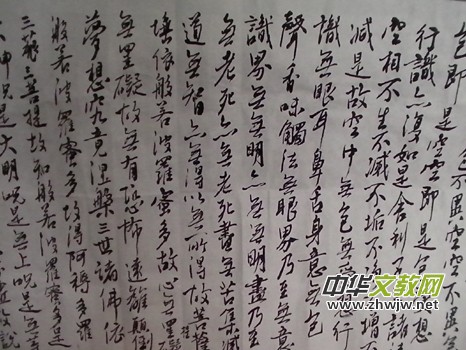 不異空空不異
色即是空空即是色
行識亦復如是舍利子
空相不生不滅不垢不
減是故空中無色無受想行
識無眼耳鼻舌身意無色
聲香味觸法無眼界乃至無意
識界無無明亦無無明盡乃至
無老死亦無老死盡無苦集滅
道無智亦無得以無所得故菩提
埵依般若波羅蜜多故心無罣
無罣礙故無有恐怖遠離顛倒
夢想究竟涅槃三世諸佛依
般若波羅蜜多故得阿耨多羅
三藐三菩提故知般若波羅蜜多是
大神咒是大明咒是無上咒是無等
中华文教网
www.zhwjw.net